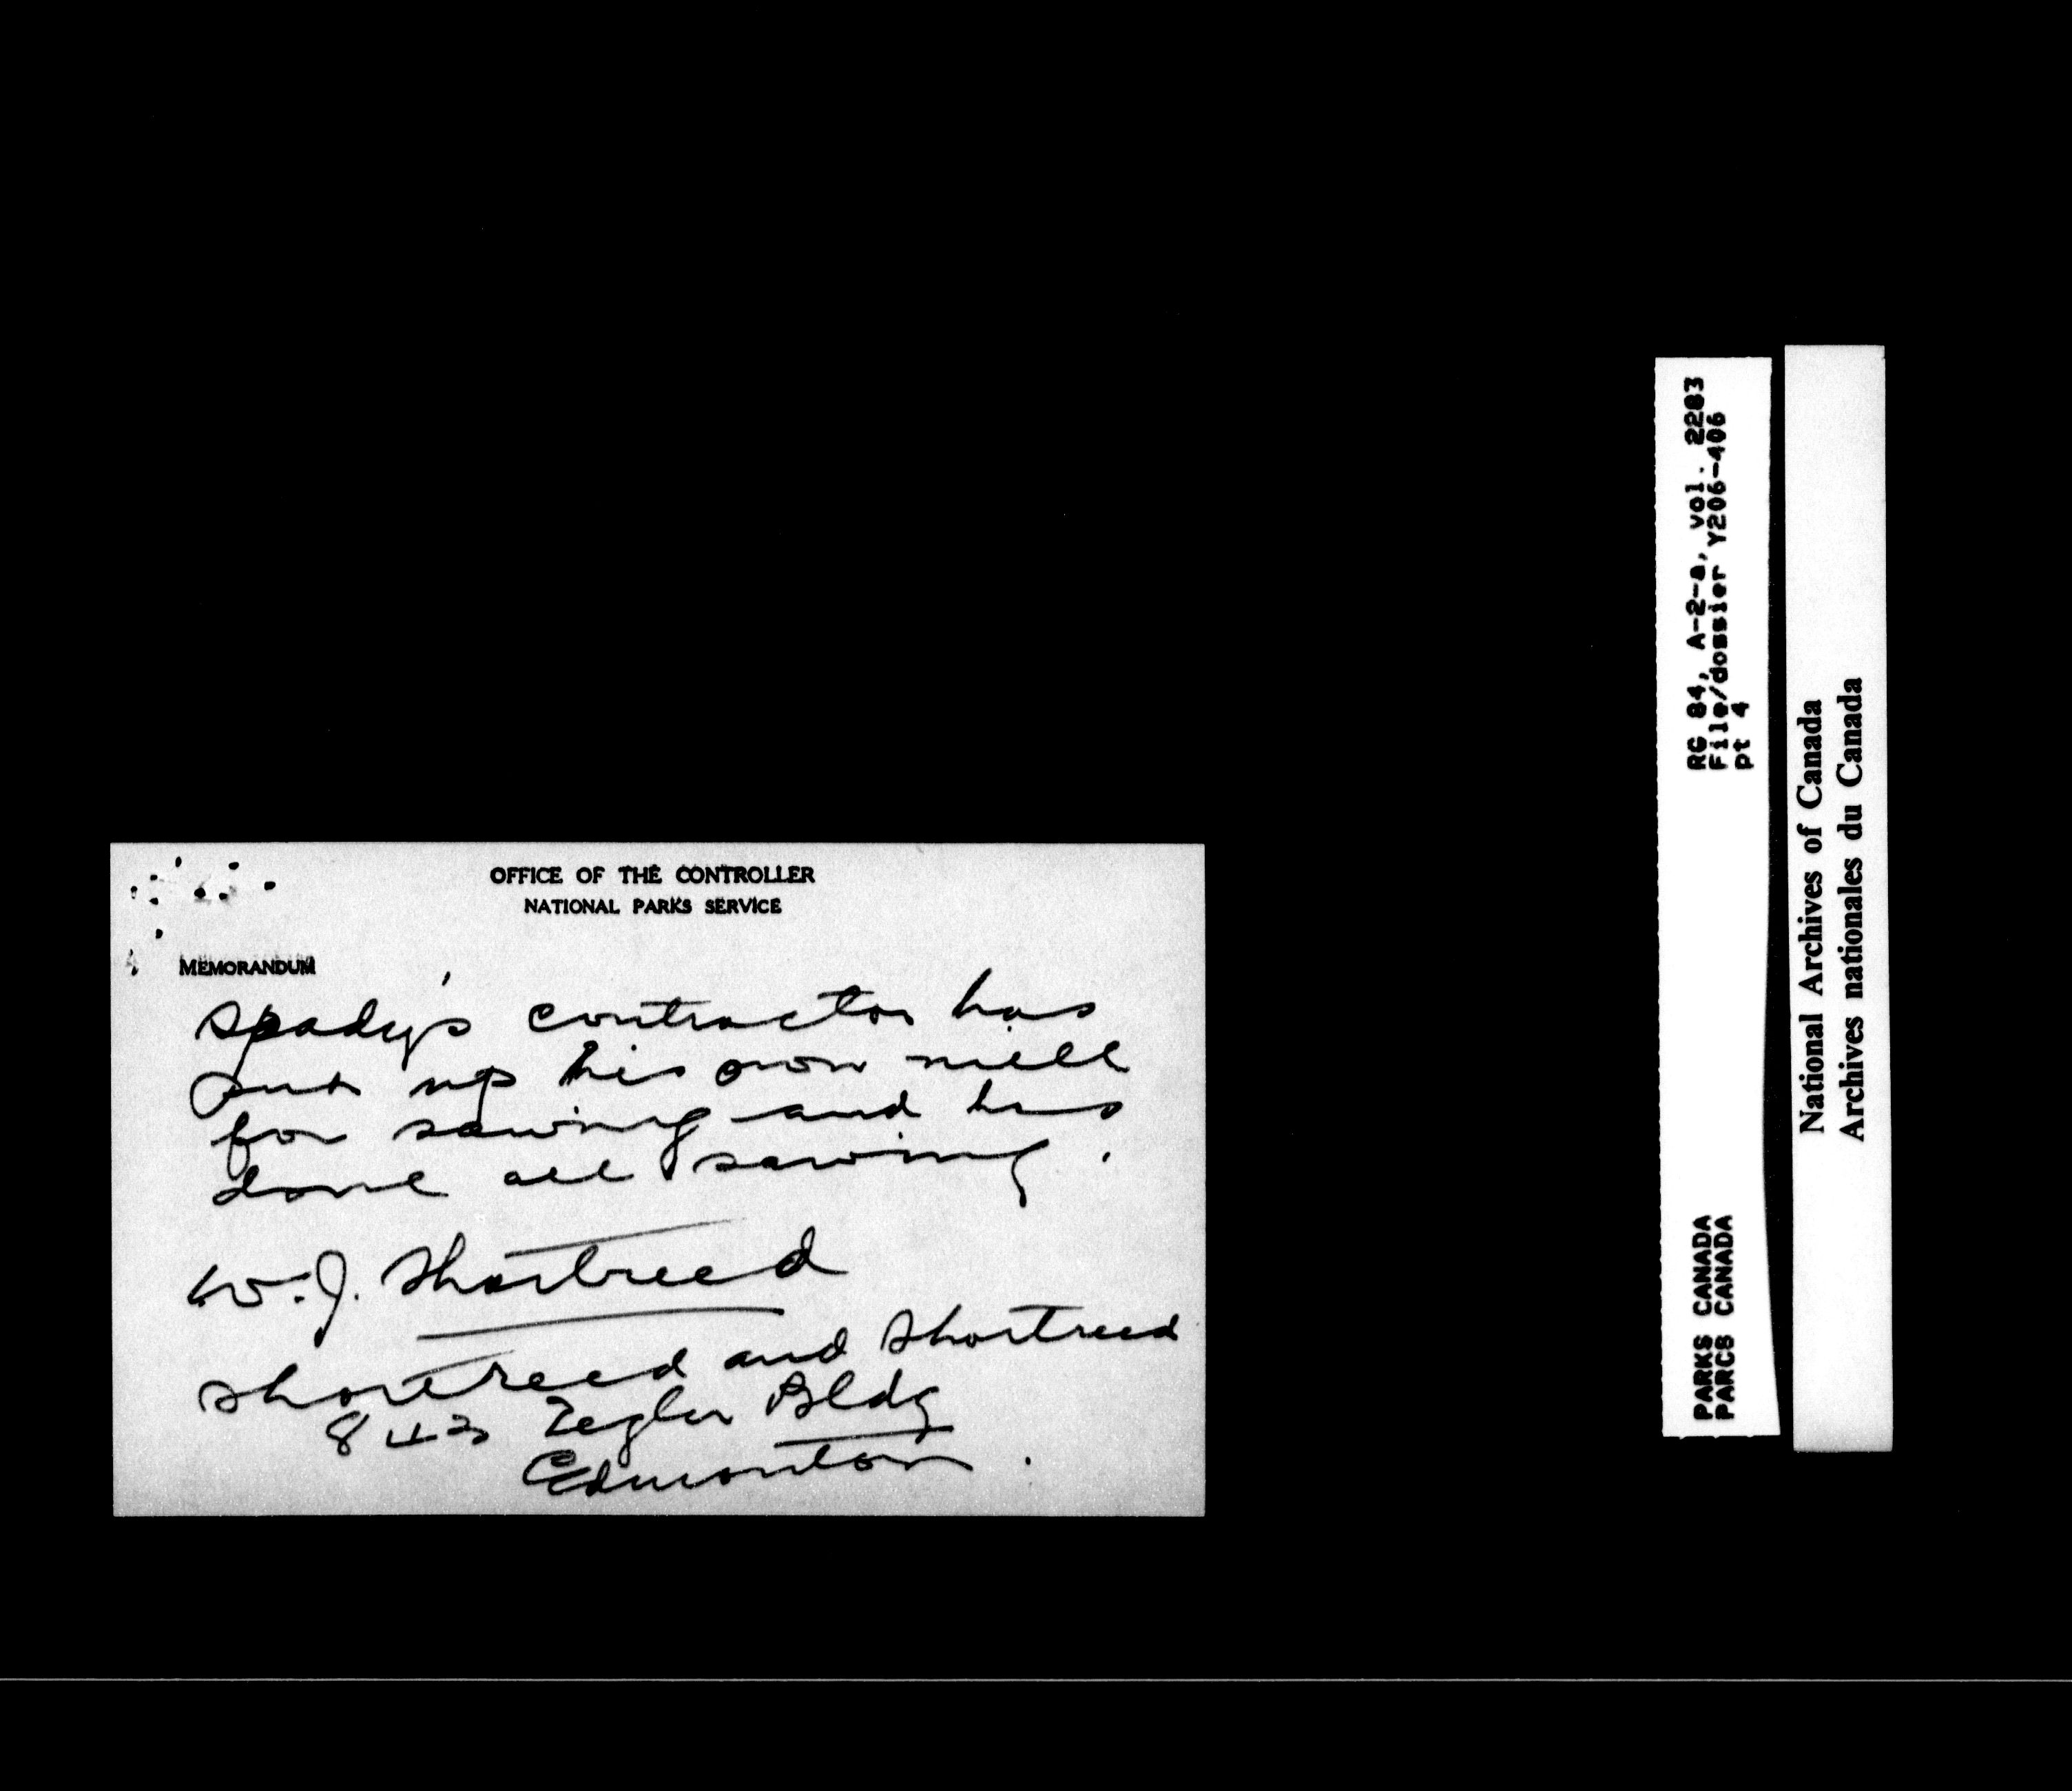 OFFICE OF THE CONTROLLER
NATIONAL PARKS SERVICE
MEMORANDUM
Spady's contractor has
put up his own mill
for sawing and has
done all sawing.
W.J. Shortreed
Shortreed and Shortreed
Tegler Bldg
Edmonton.
RG 84, A-2-a, vol. 2283
File/dossier Y206-406
pt 4
PARKS CANADA
PARCS CANADA
National Archives of Canada
Archives nationales du Canada